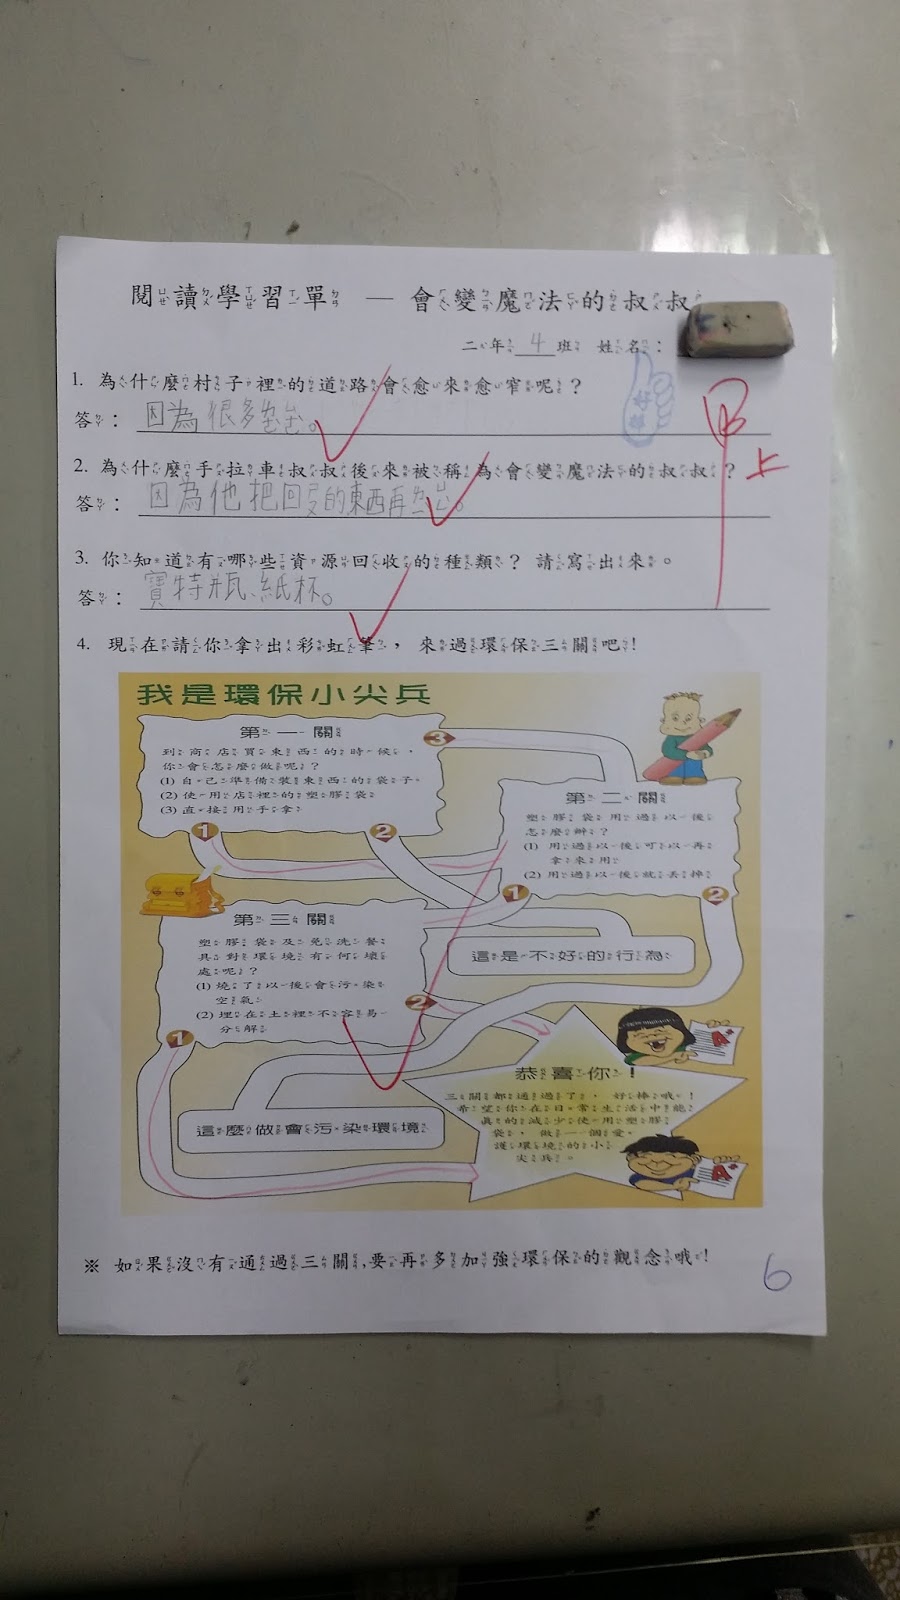 閱讀學習單 — 會變魔法的叔叔
二年4班 姓名：
1. 為什麼村子裡的道路會愈來愈窄呢？
答：因為很多垃圾。
做好
甲上
2. 為什麼手拉車叔叔後來被稱為會變魔法的叔叔？
答：因為他把回收的東西再
3. 你知道有哪些資源回收的種類？請寫出來。
答：寶特瓶、紙杯。
4. 現在請你拿出彩虹筆，來過環保三關吧！
我是環保小尖兵
第一關
到商店買東西的時候，
你會怎麼做呢？
(1) 自己準備裝東西的袋子。
(2) 使用店裡的塑膠袋
(3) 直接用手拿
1
2
3
第二關
塑膠袋用過以後
怎麼辦？
(1) 用過以後可以再
拿來用
(2) 用過以後就丟掉
1
2
第三關
塑膠袋及免洗餐
具對環境有何壞
處呢？
(1) 燒了以後會污染
空氣
(2) 埋在土裡不容易
分解
1
2
這是不好的行為
這麼做會污染環境
恭喜你！
三關都通過了，好棒哦！
希望你在日常生活中能
真的減少使用塑膠
袋，做一個愛
護環境的小
尖兵。
※ 如果沒有通過三關,要再多加強環保的觀念哦！
6